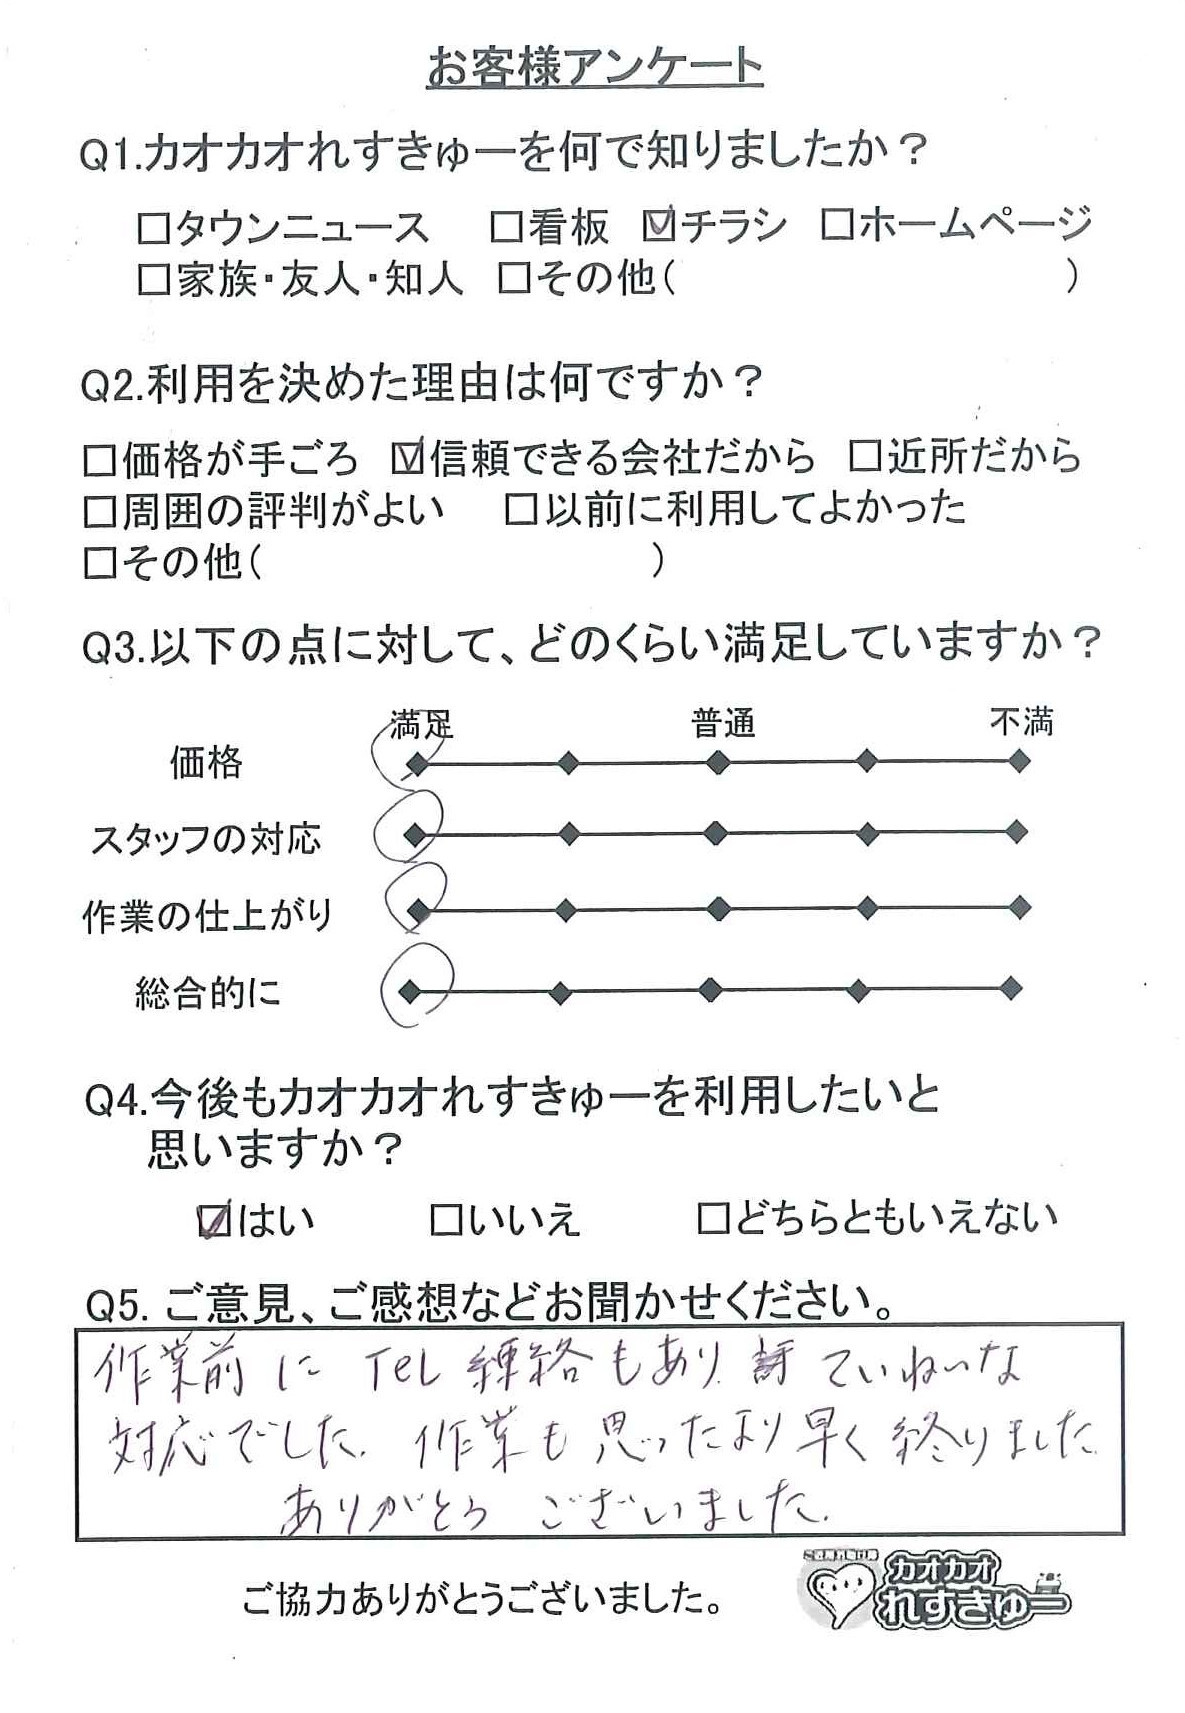 お客様アンケート
Q1.カオカオれすきゅーを何で知りましたか？
□タウンニュース □看板 ☑チラシ □ホームページ
□家族・友人・知人 □その他( )
Q2.利用を決めた理由は何ですか？
□価格が手ごろ ☑信頼できる会社だから □近所だから
□周囲の評判がよい □以前に利用してよかった
□その他( )
Q3.以下の点に対して、どのくらい満足していますか？
満足 普通 不満
価格
スタッフの対応
作業の仕上がり
総合的に
Q4.今後もカオカオれすきゅーを利用したいと
思いますか？
☑はい □いいえ □どちらともいえない
Q5. ご意見、ご感想などお聞かせください。
作業前に TEL 練絡もあり ていねいな
対応でした. 作業も思ったより早く終りました
ありがとう ございました.
ご協力ありがとうございました。
カオカオ
れすきゅー